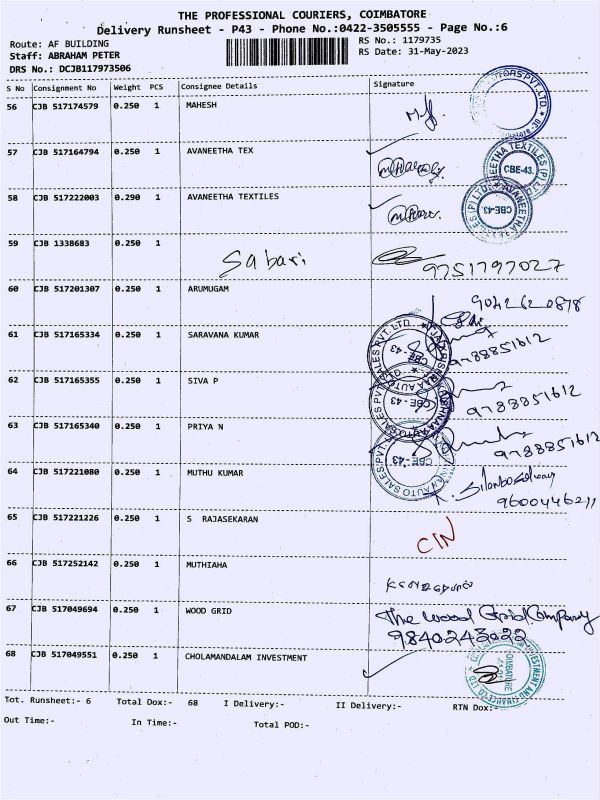 THE PROFESSIONAL COURIERS, COIMBATORE
Delivery Runsheet - P43 - Phone No.:0422-3505555 - Page No.:6
Route: AF BUILDING
RS No.: 1179735
Staff: ABRAHAM PETER
RS Date: 31-May-2023
DRS No.: DCJB117973506
S No Consignment No Weight PCS Consignee Details Signature
56 CJB 517174579 0.250 1 MAHESH
57 CJB 517164794 0.250 1 AVANEETHA TEX
CBE-43.
58 CJB 517222003 0.290 1 AVANEETHA TEXTILES
CBE-43.
59 CJB 1338683 0.250 1
Sabari 9751797027
60 CJB 517201307 0.250 1 ARUMUGAM
9042620878
61 CJB 517165334 0.250 1 SARAVANA KUMAR
CBE-43 9788851612
62 CJB 517165355 0.250 1 SIVA P
CBE-43 9788851612
63 CJB 517165340 0.250 1 PRIYA N
CBE-43 9788851612
64 CJB 517221080 0.250 1 MUTHU KUMAR
65 CJB 517221226 0.250 1 S RAJASEKARAN
CIN
66 CJB 517252142 0.250 1 MUTHIAHA
67 CJB 517049694 0.250 1 WOOD GRID
The Wood Grid Company
9840243022
68 CJB 517049551 0.250 1 CHOLAMANDALAM INVESTMENT
Tot. Runsheet:- 6 Total Dox:- 68 I Delivery:- II Delivery:- RTN Dox:-
Out Time:- In Time:- Total POD:-